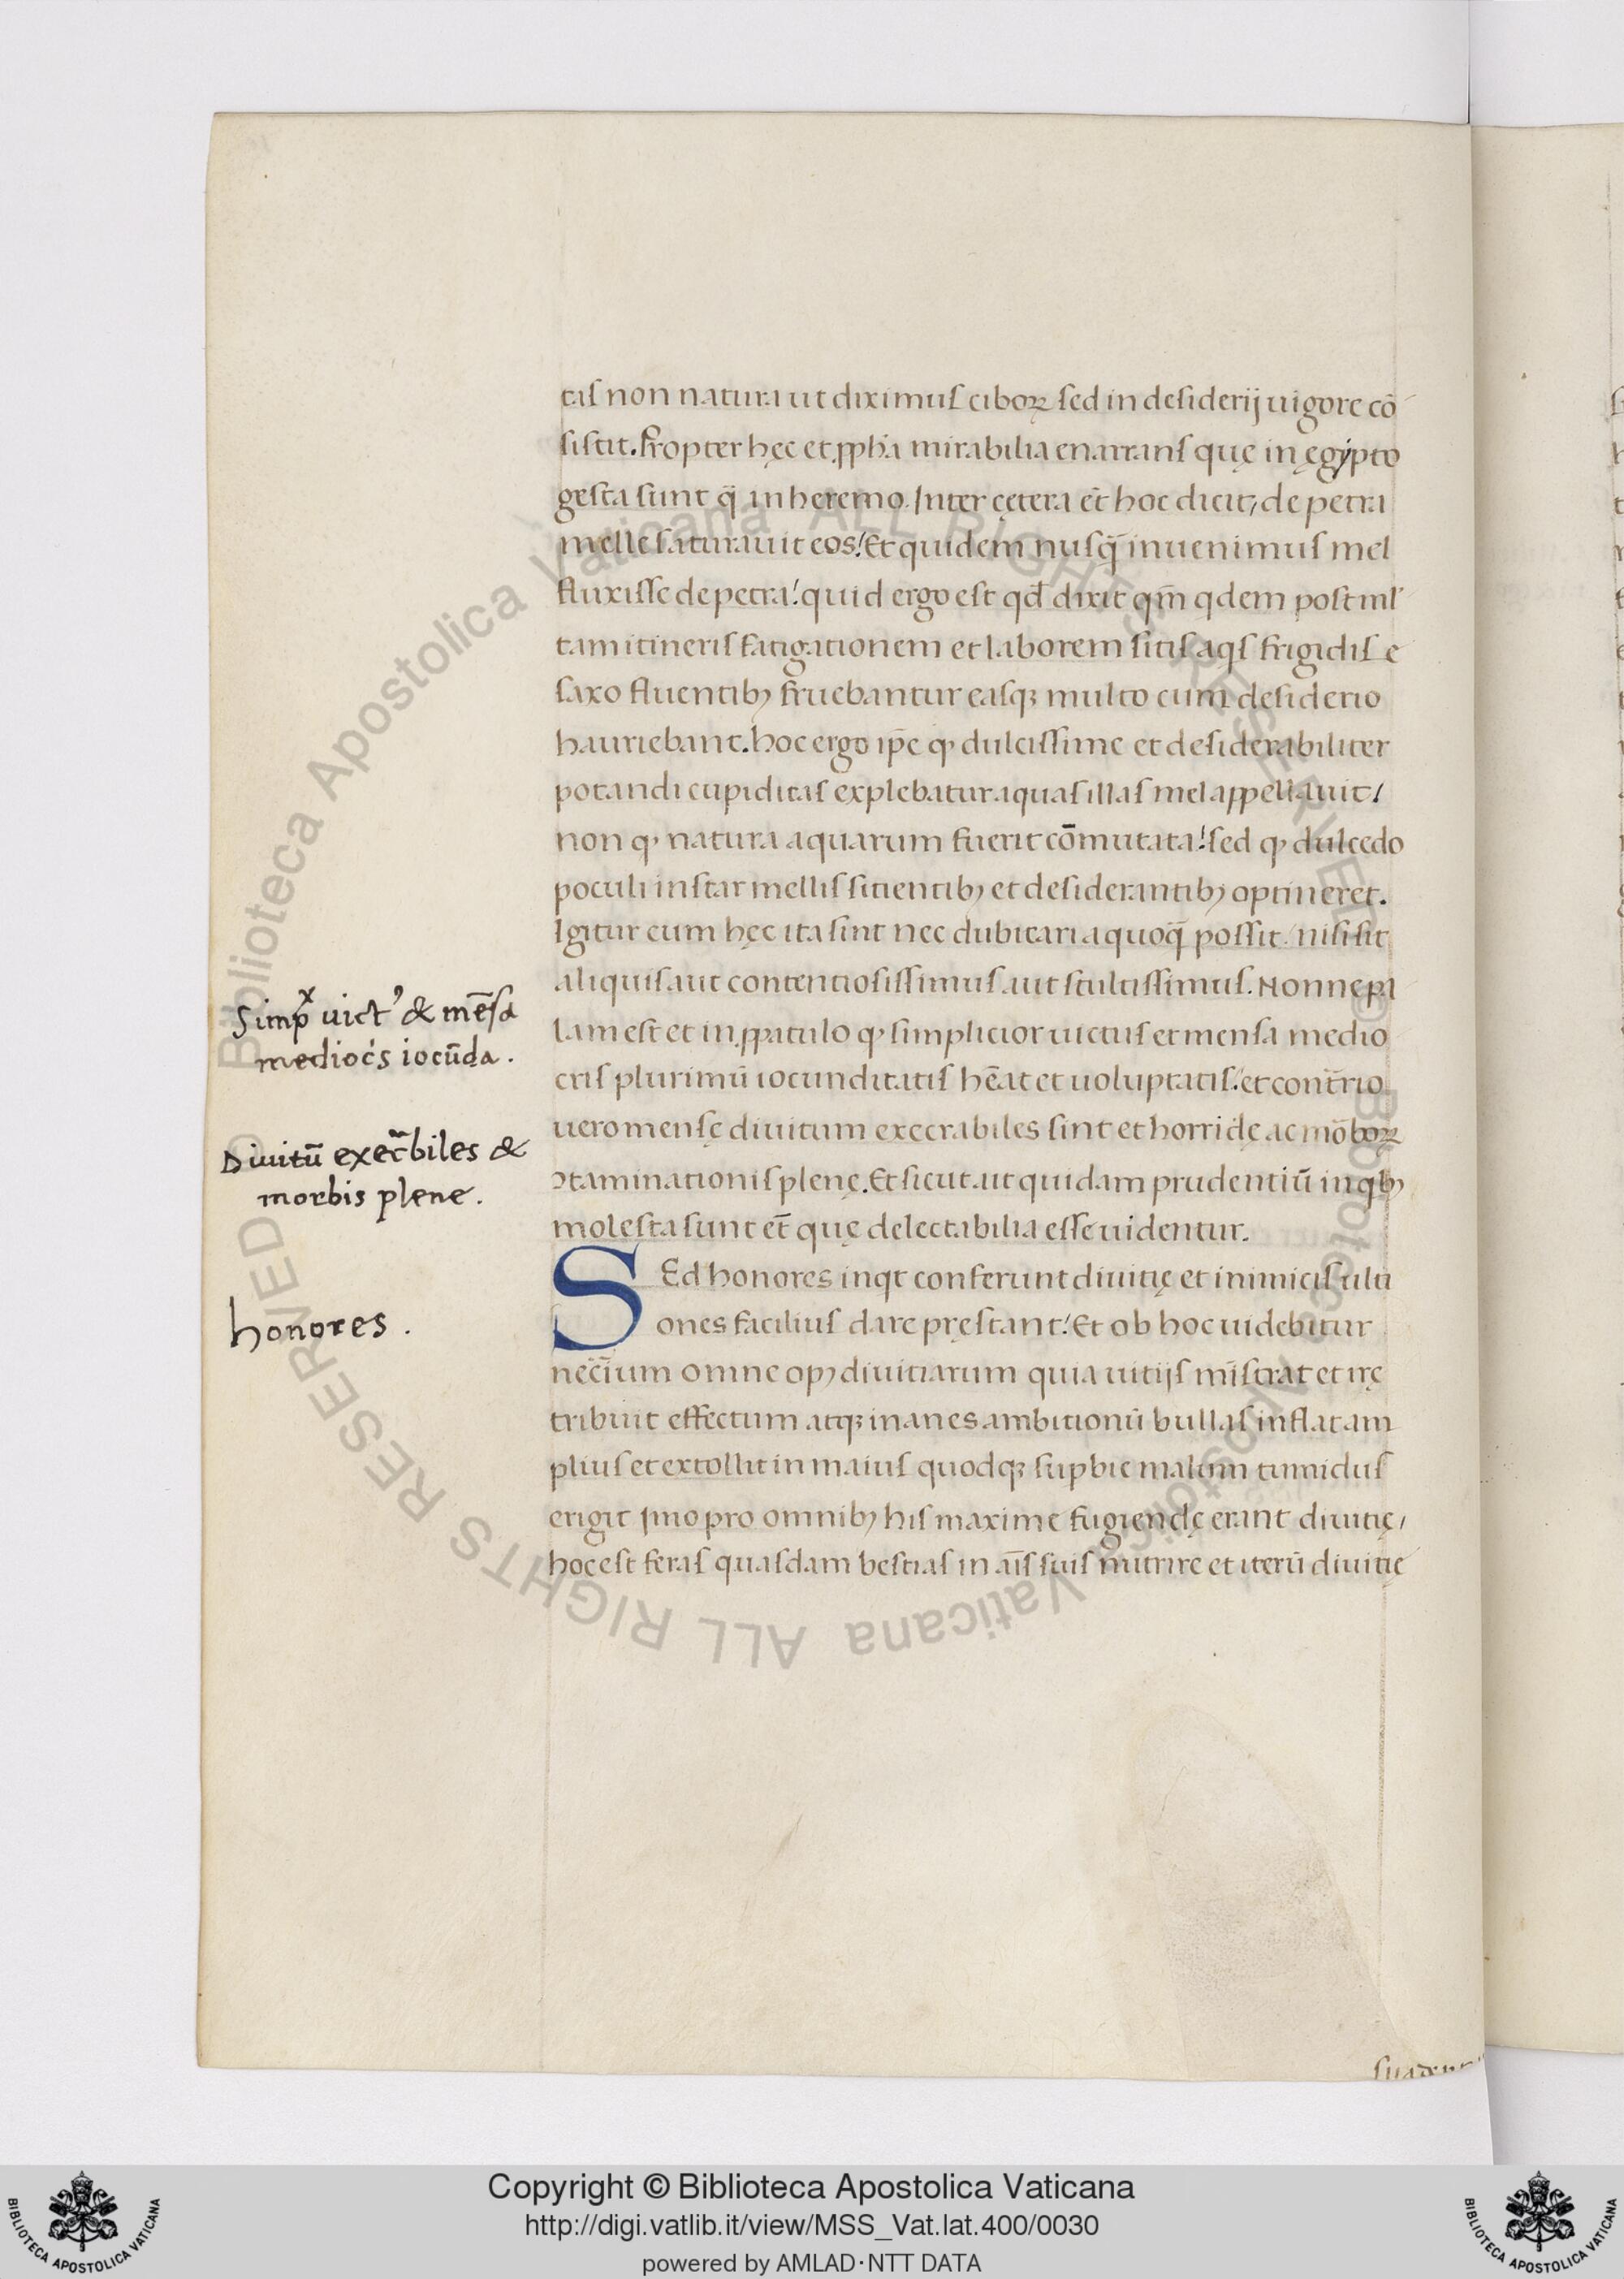 tis non natura ut diximus ciboꝝ sed in desiderij uigore cō
sistit. Propter hęc et ꝓpħa mirabilia enarrans quę in ęgypto
gesta sunt q̄ in heremo. Inter cętera et̄ hoc dicit, de petra
melle saturauit eos! Et quidem nusq̄ inuenimus mel
fluxisse de petra! quid ergo est qd̄ dixit qm̄ qdem post ml'
tam itineris fatigationem et laborem sitis aqs frigidis e
saxo fluentibꝫ fruebantur easqꝫ multo cum desiderio
hauriebant. hoc ergo ip̄e qꝰ dulcissime et desiderabiliter
potandi cupiditas explebatur aquas illas mel appellauit!
non qꝰ natura aquarum fuerit cōmutata! sed qꝰ dulcedo
poculi instar mellis sitientibꝫ et desiderantibꝫ optineret.
Igitur cum hęc ita sint nec dubitari a quoq̄ possit / nisi sit
aliquis aut contentiosissimus aut stultissimus. Nonne pa
lam est et in ꝓpatulo qꝰ simplicior uictus et mensa medio
cris plurimū iocunditatis hēat et uoluptatis! et contr̄rio
uero mensę diuitum execrabiles sint et horridę ac mōboꝝ
ↄtaminationis plenę. Et sicut ait quidam prudentiū in qbꝫ
molesta sunt et̄ quę delectabilia esse uidentur.
SEd honores inqt conferunt diuitię et inimicis ulti
ones facilius dare pręstant! Et ob hoc uidebitur
nec̄ium omne opꝫ diuitiarum quia uitijs mīstrat et irę
tribuit effectum atqꝫ inanes ambitionū bullas inflat am
plius et extollit in maius quodqꝫ supbie malum tumidus
erigit Imo pro omnibꝫ his maxime fugiendę erant diuitię,
hoc est feras quasdam bestias in aīs suis nutrire et iterū diuitię
Simpˣ uictꝰ & mēsa
mediocs iocūda.
Diuitū exec̃biles &
morbis plene.
honores.
Biblioteca Apostolica Vaticana ALL RIGHTS RESERVED © Biblioteca Apostolica Vaticana ALL RIGHTS RESERVED ©
Copyright © Biblioteca Apostolica Vaticana
http://digi.vatlib.it/view/MSS_Vat.lat.400/0030
powered by AMLAD·NTT DATA
BIBLIOTECA APOSTOLICA VATICANA
BIBLIOTECA APOSTOLICA VATICANA